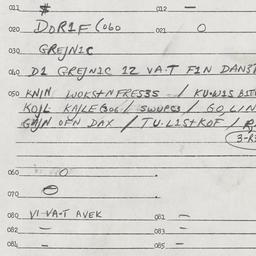 011 $ 012 —
020 DORIF (060 021 O
030 GREJNIC
040 DI GREJNIC 12 VA-T FIN DAN3
050 KNJN WOKSTNFRES3S / KU-WIS BIT
KOJL KAJLEGOG / SWUPS3 / GO, LIN
GAJN OFN DAX / TU-LISTKOF /
3-R
060 O
070 O
080 VI VA-T AVEK 081 —
082 — 083 —
084 — 085 —